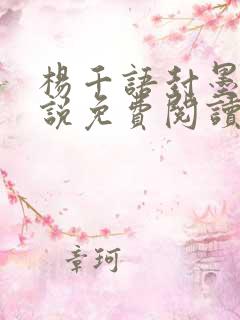 楊千語封墨
說免費閱讀
章珂